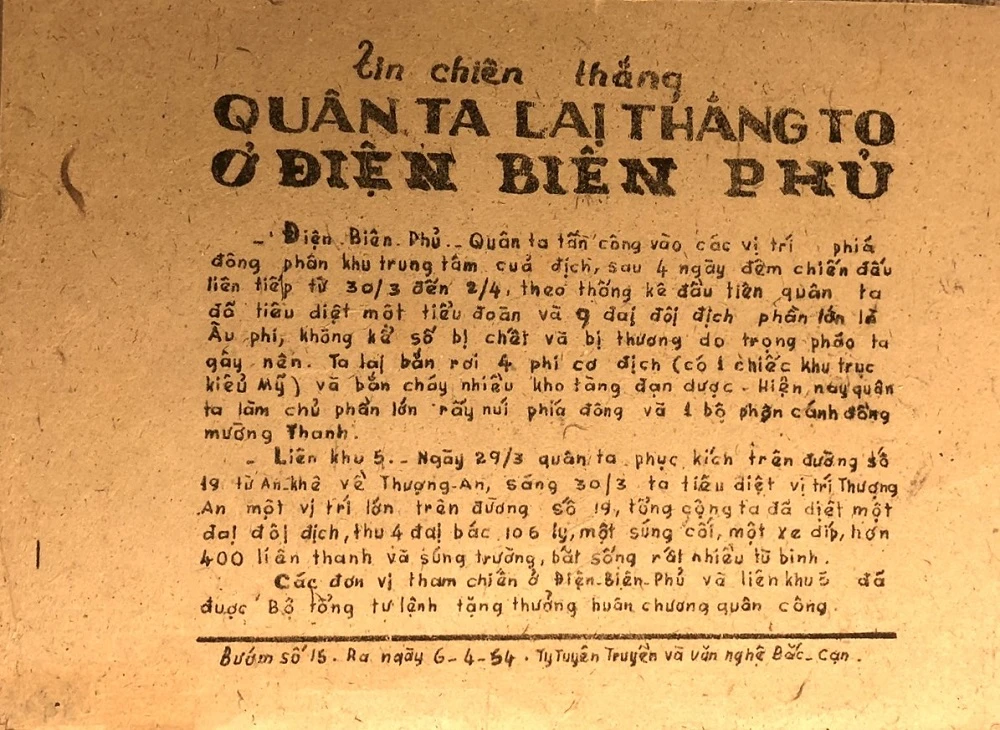 Tin chiến thắng
QUÂN TA LẠI THẮNG TO
Ở ĐIỆN BIÊN PHỦ
- Điện-Biên-Phủ.- Quân ta tấn công vào các vị trí phiá
đông phân khu trung tâm cuả địch, sau 4 ngày đêm chiến đấu
liên tiếp từ 30/3 đến 2/4, theo thống kê đầu tiên quân ta
đã tiêu diệt một tiểu đoàn và 9 đại đội địch phần lớn là
Âu phi, không kể số bị chết và bị thương do trọng pháo ta
gây nên. Ta lại bắn rơi 4 phi cơ địch (có 1 chiếc khu trục
kiểu Mỹ) và bắn cháy nhiều kho tàng đạn dược. Hiện nay quân
ta làm chủ phần lớn rãy núi phiá đông và 1 bộ phận cánh đồng
mường Thanh.
- Liên khu 5.- Ngày 29/3 quân ta phục kích trên đường số
19 từ An-khê về Thượng-An, sáng 30/3 ta tiêu diệt vị trí Thượng
An một vị trí lớn trên đường số 19, tổng cộng ta đã diệt một
đại đội địch, thu 4 đại bác 106 ly, một súng cối, một xe díp, hơn
400 liên thanh và súng trường, bắt sống rất nhiều tù binh.
Các đơn vị tham chiến ở Điện-Biên-Phủ và liên khu 5 đã
được Bộ tổng tư lệnh tặng thưởng huân chương quân công.
Bướm số 15. Ra ngày 6-4-54. Ty Tuyên Truyền và văn nghệ Bắc-Cạn.